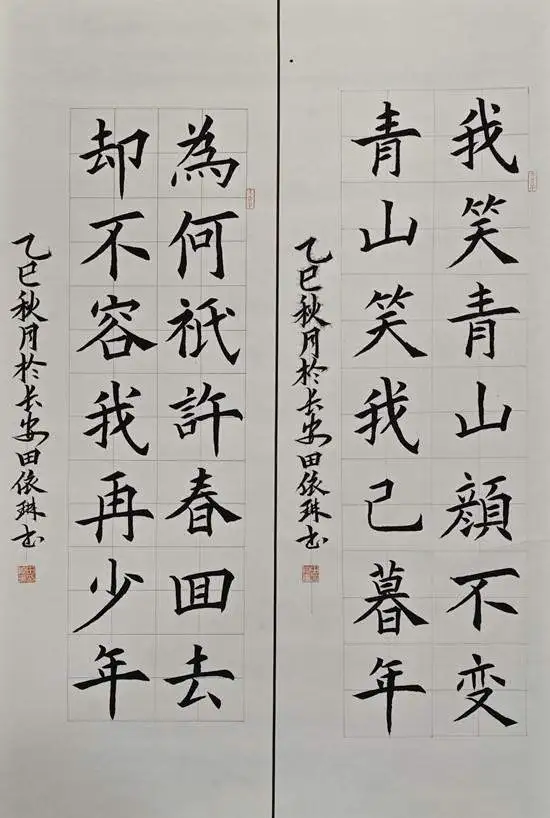 我笑青山顔不变
青山笑我已暮年
乙巳秋月於长安田依琳书
為何祗許春回去
却不容我再少年
乙巳秋月於长安田依琳书